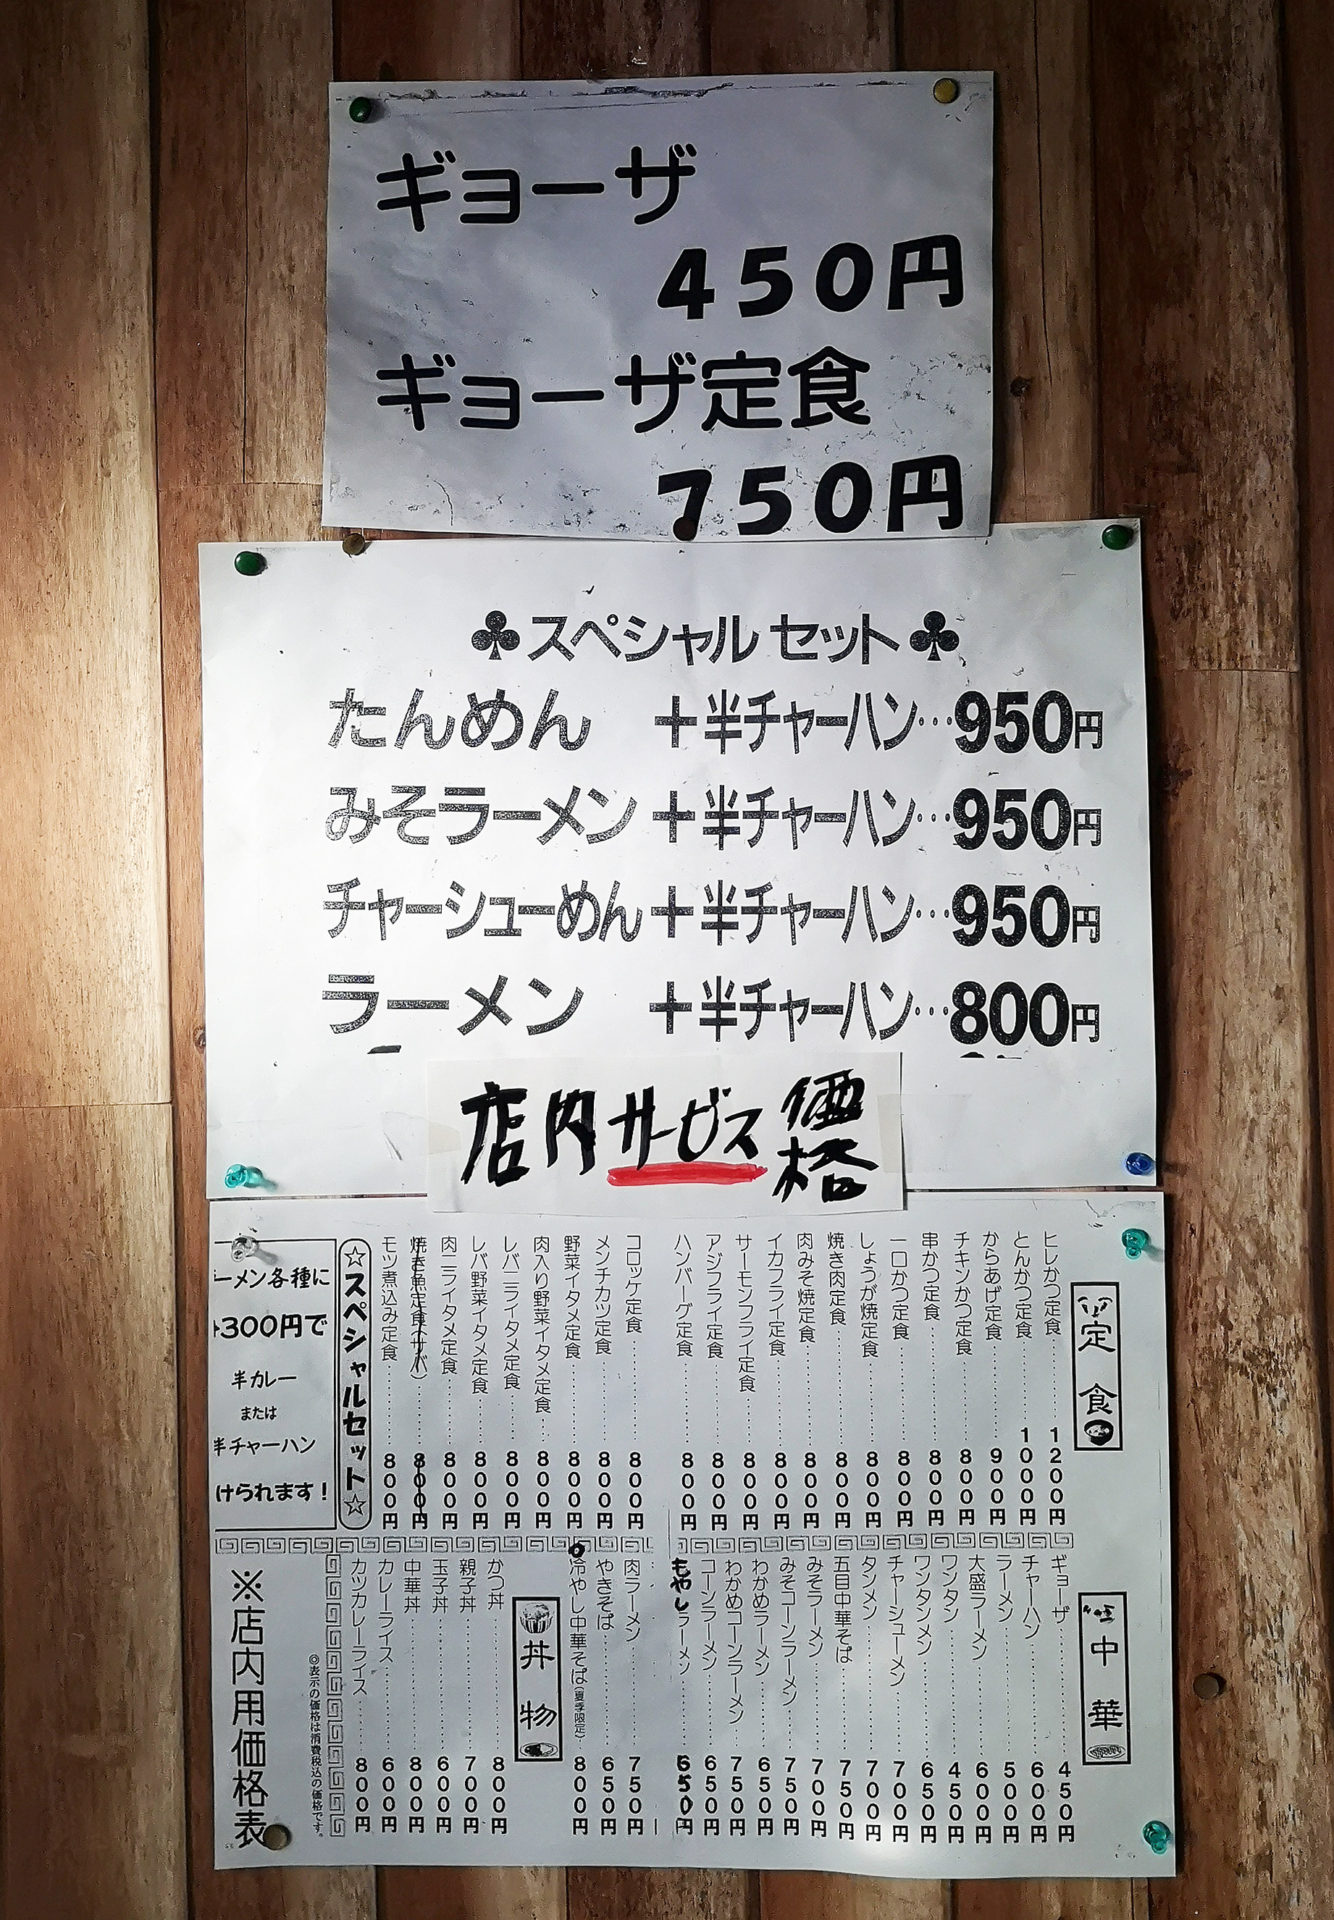 ギョーザ
450円
ギョーザ定食
750円
♣スペシャルセット♣
たんめん +半チャーハン…950円
みそラーメン+半チャーハン…950円
チャーシューめん+半チャーハン…950円
ラーメン +半チャーハン…800円
店内サービス価格
定食
ヒレかつ定食……1200円
とんかつ定食……1000円
からあげ定食……900円
チキンかつ定食……800円
串かつ定食……800円
一口かつ定食……800円
しょうが焼定食……800円
焼き肉定食……800円
肉みそ焼定食……800円
イカフライ定食……800円
サーモンフライ定食……800円
アジフライ定食……800円
ハンバーグ定食……800円
コロッケ定食……800円
メンチカツ定食……800円
野菜イタメ定食……800円
肉入り野菜イタメ定食……800円
レバニライタメ定食……800円
レバ野菜イタメ定食……800円
肉ニライタメ定食……800円
焼き魚定食(サバ)……800円
モツ煮込み定食……800円
☆スペシャルセット☆
ーメン各種に
+300円で
半カレー
または
半チャーハン
けられます!
中華
ギョーザ……450円
チャーハン……600円
ラーメン……500円
大盛ラーメン……600円
ワンタン……450円
ワンタンメン……650円
チャーシューメン……700円
タンメン……700円
五目中華そば……750円
みそラーメン……700円
みそコーンラーメン……750円
わかめラーメン……650円
わかめコーンラーメン……750円
コーンラーメン……650円
もやしラーメン……650円
肉ラーメン……750円
やきそば……650円
冷やし中華そば(夏季限定)……800円
丼物
かつ丼……800円
親子丼……700円
玉子丼……600円
中華丼……800円
カレーライス……600円
カツカレーライス……800円
◎表示の価格は消費税込の価格です。
※店内用価格表